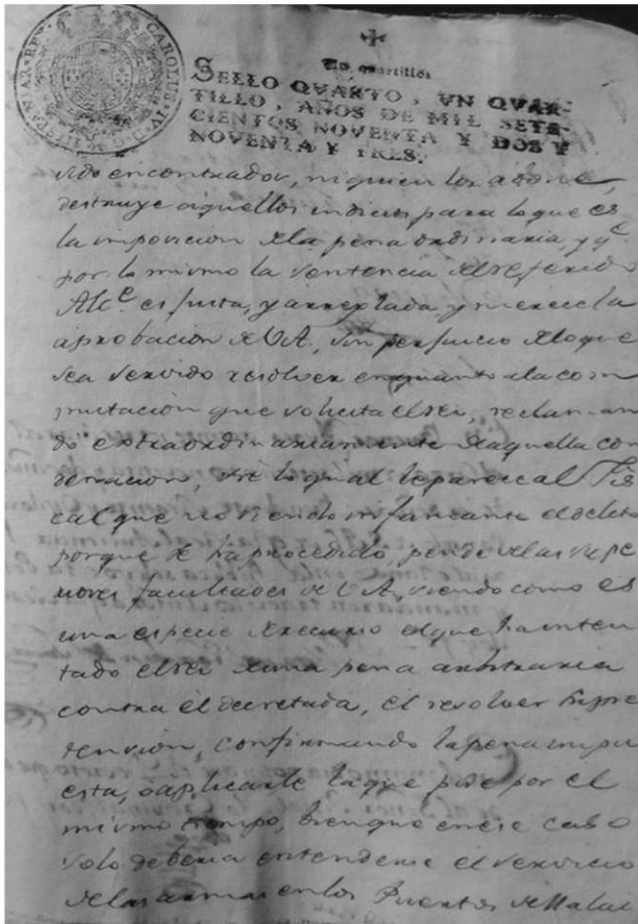 CAROLUS IV D G HISPANIAR REX
Un quartillo
SELLO QUARTO, VN QUAR-
TILLO, AÑOS DE MIL SETE-
CIENTOS NOVENTA Y DOS Y
NOVENTA Y TRES.
sido encontrador, ni quien los abone,
destruye aquellos indicios para lo que es
la imposicion de la pena ordinaria, y q.e
por lo mismo la sentencia del referido
Alc.e es justa, y arreglada y merece la
aprobacion de V.A., sin perjuicio de lo que
sea servido resolver en quanto a la com
mutacion que solicita el reo, reclaman
do extraordinariamente de aquella con
denacion, sre lo qual le parece al Fis
cal que no siendo infamante el delito
porque se ha procedido, pende de las supe
riores facultades de V.A., siendo como es
una especie de recurso el que ha inten
tado el reo de una pena arbitraria
contra él decretada, el resolver su pre
tension, confirmando la pena impu
esta, ó aplicarle la que pide por el
mismo tiempo, bien que en ese caso
solo deberia entenderse el servicio
de las armas en los Puertos de